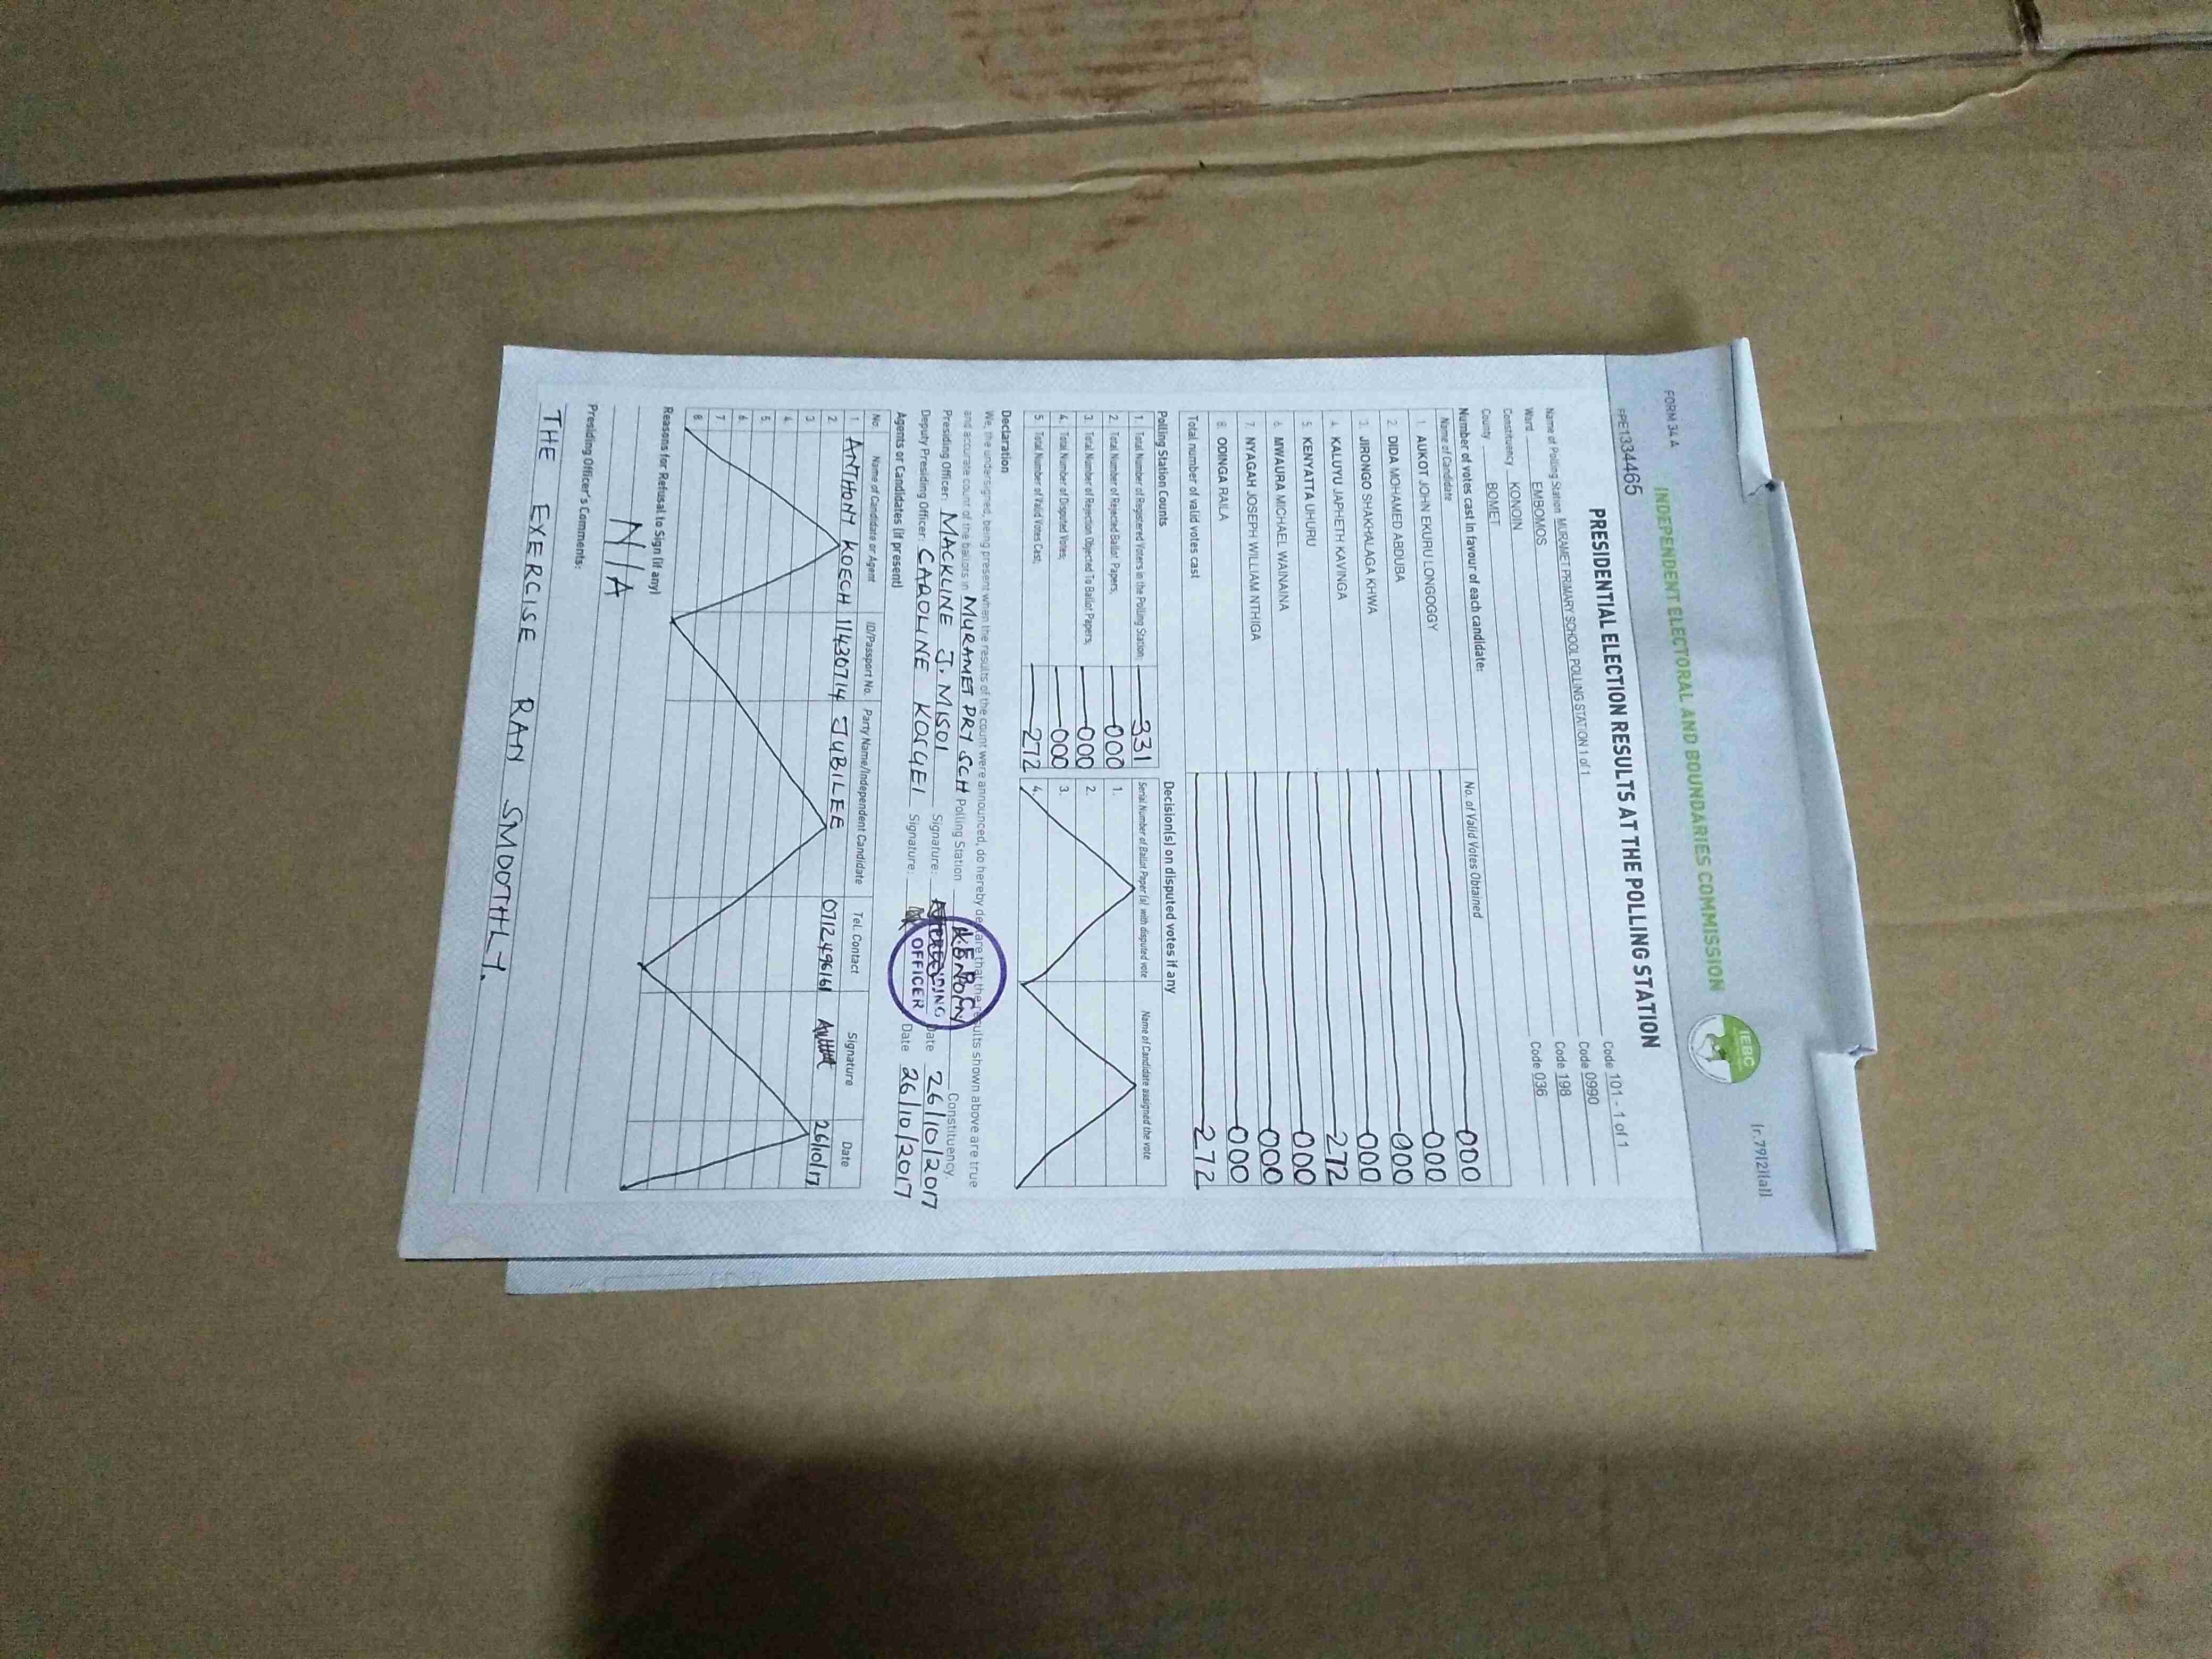 FORM 34 A
(r.79(2)(a))
INDEPENDENT ELECTORAL AND BOUNDARIES COMMISSION
IEBC
PPE1334465
PRESIDENTIAL ELECTION RESULTS AT THE POLLING STATION
Name of Polling Station MURAMET PRIMARY SCHOOL POLLING STATION 1 of 1 Code 101 - 1 of 1
Ward EMBOMOS Code 0990
Constituency KONOIN Code 198
County BOMET Code 036
Number of votes cast in favour of each candidate:
Name of Candidate No. of Valid Votes Obtained
1. AUKOT JOHN EKURU LONGOGGY 000
2. DIDA MOHAMED ABDUBA 000
3. JIRONGO SHAKHALAGA KHWA 000
4. KALUYU JAPHETH KAVINGA 000
5. KENYATTA UHURU 272
6. MWAURA MICHAEL WAINAINA 000
7. NYAGAH JOSEPH WILLIAM NTHIGA 000
8. ODINGA RAILA 000
Total number of valid votes cast 272
Polling Station Counts Decision(s) on disputed votes if any
Serial Number of Ballot Paper (s) with disputed vote Name of Candidate assigned the vote
1. Total Number of Registered Voters in the Polling Station; 331
2. Total Number of Rejected Ballot Papers; 000 1.
3. Total Number of Rejection Objected To Ballot Papers; 000 2.
4. Total Number of Disputed Votes; 000 3.
5 Total Number of Valid Votes Cast; 272 4.
Declaration
We, the undersigned, being present when the results of the count were announced, do hereby declare that the results shown above are true
and accurate count of the ballots in MURAMET PRY SCH Polling Station KONOIN Constituency.
Presiding Officer: MACKLINE J. MISOI Signature: Date 26/10/2017
Deputy Presiding Officer: CAROLINE KOSGEI Signature: Date 26/10/2017
I.E.B.C
PRESIDING
OFFICER
Agents or Candidates (if present)
No. Name of Candidate or Agent ID/Passport No. Party Name/Independent Candidate Tel. Contact Signature Date
1 ANTHONY KOECH 11430714 JUBILEE 0712496161 26/10/17
2.
3
4.
5.
6.
7
8.
Reasons for Refusal to Sign (if any)
N/A
Presiding Officer's Comments:
THE EXERCISE RAN SMOOTHLY.